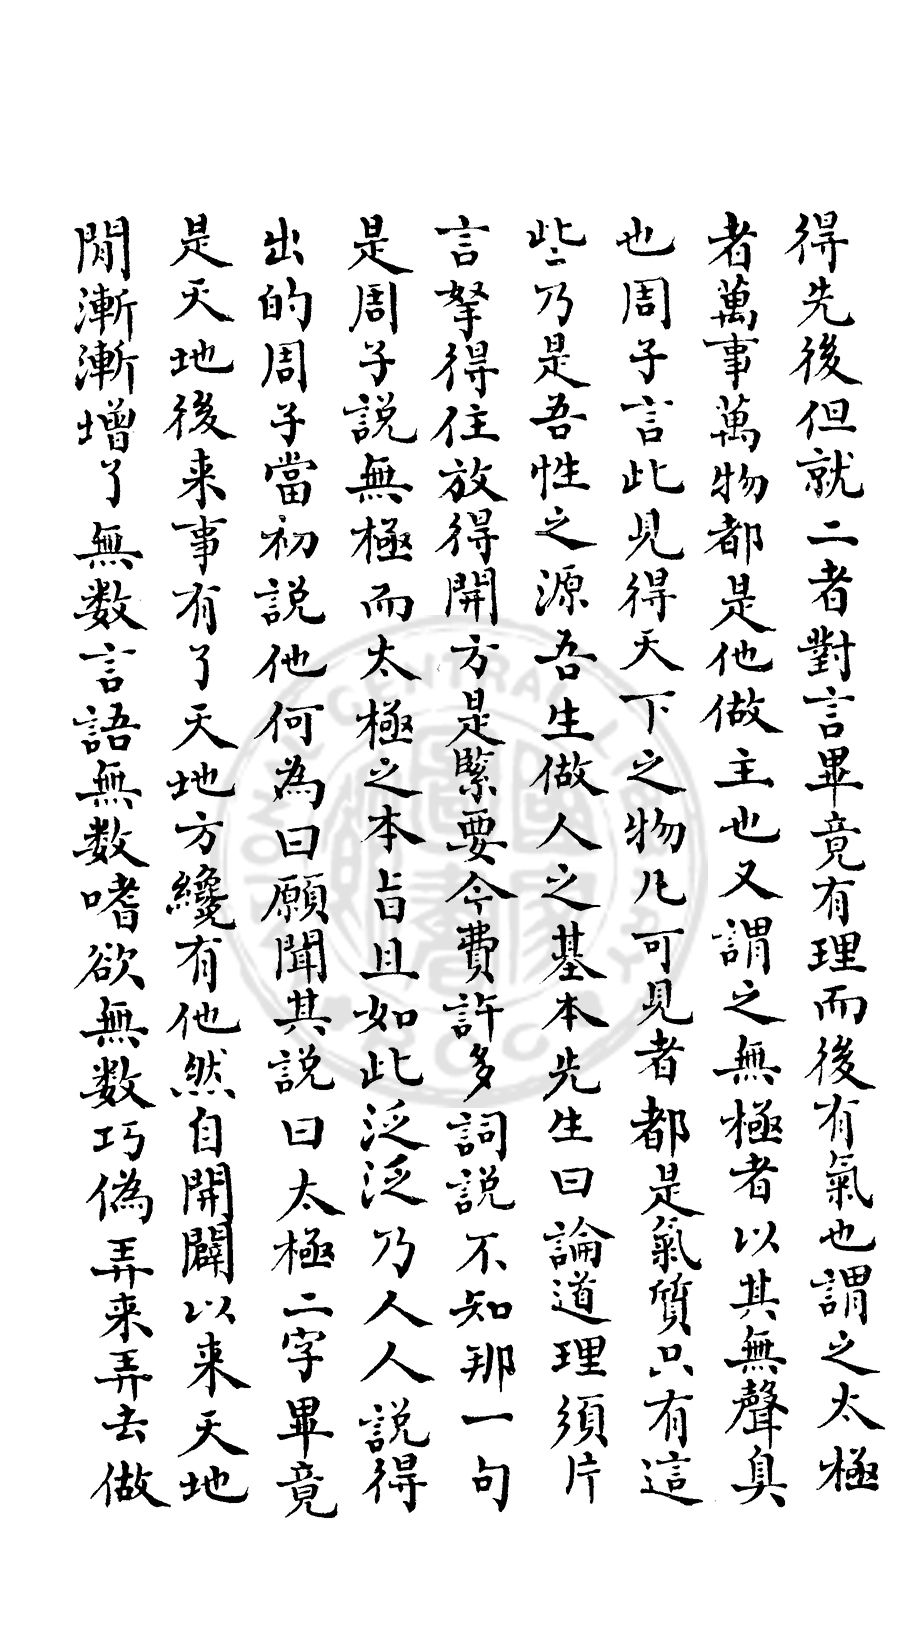 得先後但就二者對言畢竟有理而後有氣也謂之太極
者萬事萬物都是他做主也又謂之無極者以其無聲臭
也周子言此見得天下之物凡可見者都是氣質只有這
些乃是吾性之源吾生做人之基本先生曰論道理須片
言拏得住放得開方是緊要今費許多詞說不知那一句
是周子說無極而太極之本旨且如此泛泛乃人人說得
出的周子當初說他何為曰願聞其說曰太極二字畢竟
是天地後来事有了天地方纔有他然自開闢以来天地
閒漸漸增了無数言語無数嗜欲無数巧偽弄来弄去做
NATIONAL CENTRAL LIBRARY